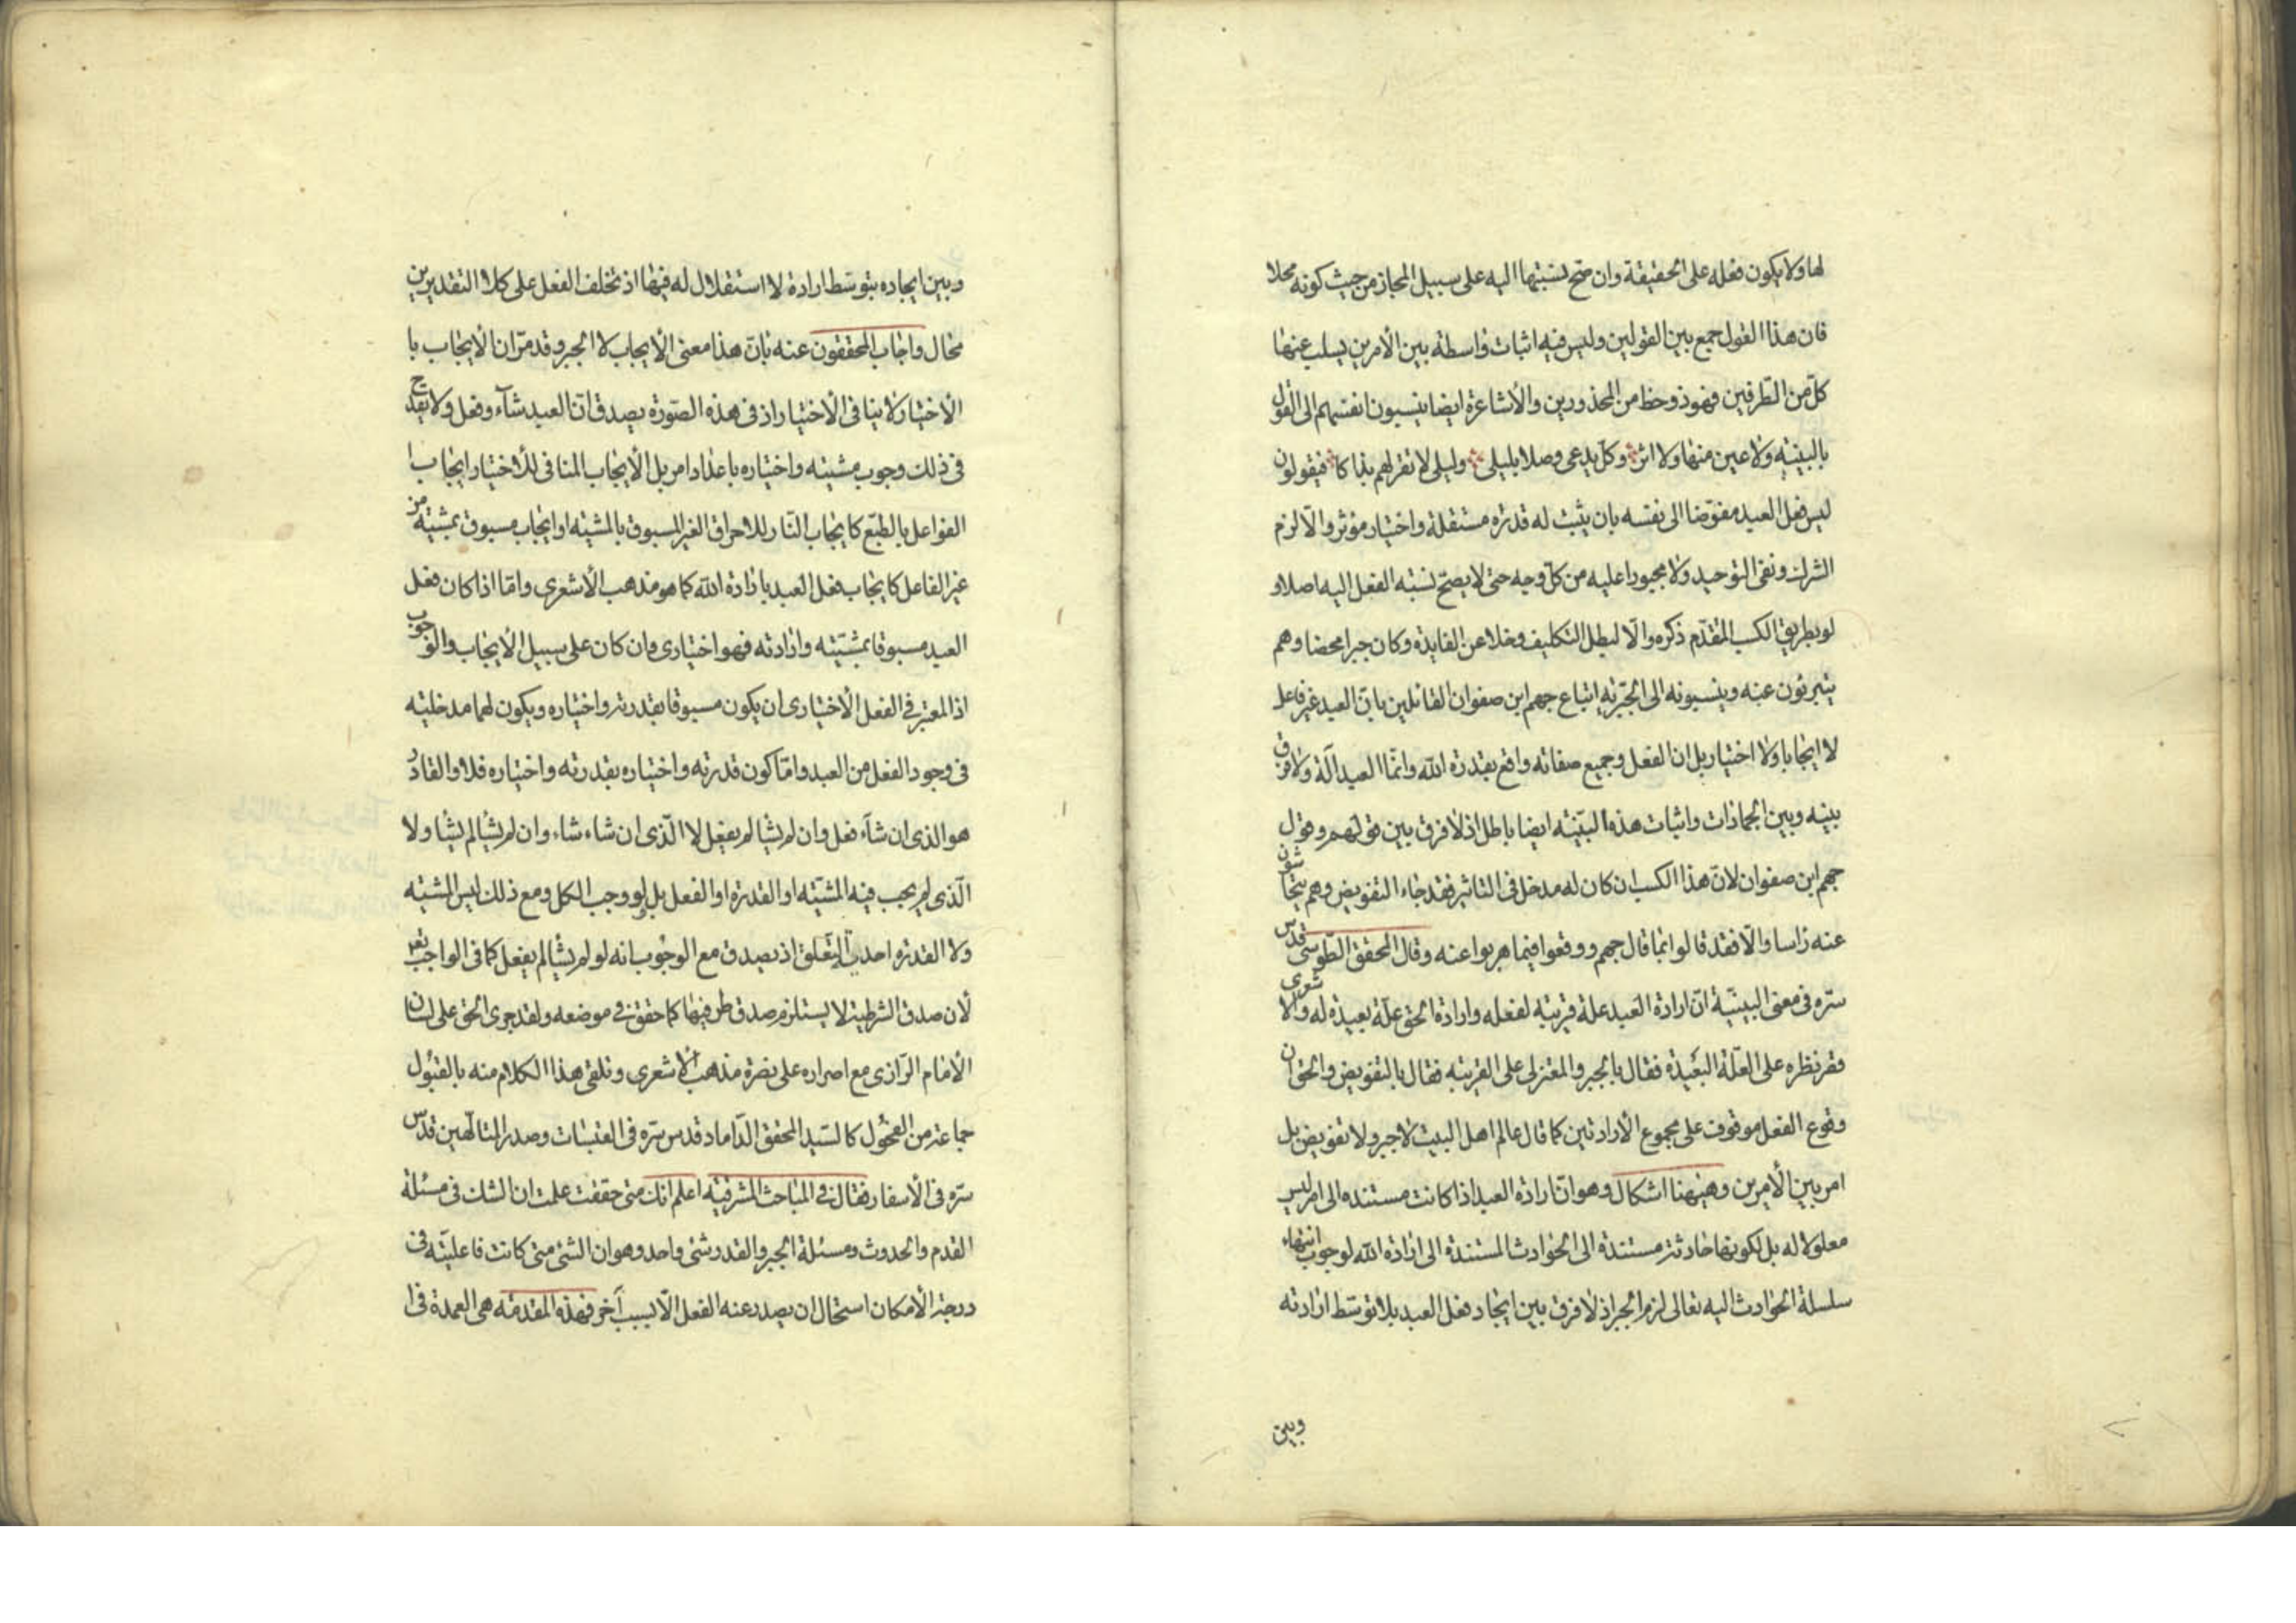 لها ولا يكون فعله على الحقيقة وان صح نسبتها اليه على سبيل المجاز من حيث كونه محلا
فان هذا القول جمع بين القولين وليس فيه اثبات واسطة بين الأمرين يسلب عنها
كل من الطرفين فهو ذو حظ من المحذورين والأشاعرة ايضا ينسبون انفسهم الى القول
بالبينيه ولا عين منها ولا اثر وكل يدعى وصلا بليلى وليلى لا تقر لهم بذاكا فيقولون
ليس فعل العبد مفوضا الى نفسه بان يثبت له قدرة مستقلة واختيار مؤثر والا لزم
الشرك ونفى التوحيد ولا مجبورا عليه من كل وجه حتى لا يصح نسبه الفعل اليه اصلا و
لو بطريق الكسب المتقدم ذكره والا لبطل التكليف وخلا عن الفايدة وكان جبرا محضا وهم
يتبرئون عنه وينسبونه الى الجبرية اتباع جهم ابن صفوان القائلين بان العبد غير فاعل
لا ايجابا ولا اختيارا بل ان الفعل وجميع صفاته واقع بقدرة الله وانما العبد آلة ولا فرق
بينه وبين الجمادات واثبات هذه البينية ايضا باطل اذ لا فرق بين قولهم وقول
جهم ابن صفوان لان هذا الكسب ان كان له مدخل فى التاثير فقد جاء التفويض وهم يتحاشون
عنه راسا والا فقد قالوا بما قال جهم ووقعوا فيما هربوا عنه وقال المحقق الطوسى قدس
سره فى معنى البينية ان ارادة العبد علة قريبة لفعله وارادة الحق علة بعيدة له والاشعرى
قصر نظره على العلة البعيدة فقال بالجبر والمعتزلى على القريبه فقال بالتفويض والحق ان
وقوع الفعل موقوف على مجموع الأرادتين كما قال عالم اهل البيت لا جبر ولا تفويض بل
امر بين الأمرين وهيهنا اشكال وهو ان ارادة العبد اذا كانت مستندة الى امر ليس
معلولا له بل لكونها حادثة مستندة الى الحوادث المستندة الى ارادة الله لوجوب انتهاء
سلسلة الحوادث اليه تعالى لزم الجبر اذ لا فرق بين ايجاد فعل العبد بلا توسط ارادته
وبين
وبين ايجاده بتوسط ارادة لا استقلال له فيها اذ تخلف الفعل على كلا التقديرين
محال واجاب المحققون عنه بان هذا معنى الأيجاب لا الجبر وقد مر ان الأيجاب با
الأختيار لا ينافى الأختيار اذ فى هذه الصورة يصدق ان العبد شاء وفعل ولا يقدح
فى ذلك وجوب مشيته واختياره باعداد امر بل الأيجاب المنافى للأختيار ايجاب ا
الفواعل بالطبع كايجاب النار للاحراق الغير المسبوق بالمشيته او ايجاب مسبوق بمشيته من
غير الفاعل كايجاب فعل العبد بارادة الله كما هو مذهب الأشعرى واما اذا كان فعل
العبد مسبوقا بمشيته وارادته فهو اختيارى وان كان على سبيل الأيجاب والوجوب
اذ المعتبر فى الفعل الأختيارى ان يكون مسبوقا بقدرته واختياره ويكون لهما مدخلية
فى وجود الفعل من العبد واما كون قدرته واختياره بقدرته واختياره فلا والقادر
هو الذى ان شآء فعل وان لم يشا لم يفعل لا الذى ان شاء شاء وان لم يشا لم يشا ولا
الذى لم يجب فيه المشيته او القدرة او الفعل بل لو وجب الكل ومع ذلك ليس المشيته
ولا القدرة احدى التعلق اذ يصدق مع الوجوب انه لو لم يشا لم يفعل كما فى الواجب تعر
لأن صدق الشرطية لا يستلزم صدق طرفيها كما حقق فى موضعه ولقد جرى الحق على لسان
الأمام الرازى مع اصراره على نصرة مذهب الأشعرى وتلقى هذا الكلام منه بالقبول
جماعة من الفحول كالسيد المحقق الداماد قدس سره فى القبسات وصدر المتالهين قدس
سره فى الأسفار فقال فى المباحث المشرقية اعلم انك متى حققت علمت ان الشك فى مسئلة
القدم والحدوث ومسئلة الجبر والقدر شئ واحد وهو ان الشئ متى كانت فاعليته فى
درجة الأمكان استحال ان يصدر عنه الفعل الا بسبب آخر فهذه المقدمة هى العمدة فى ا